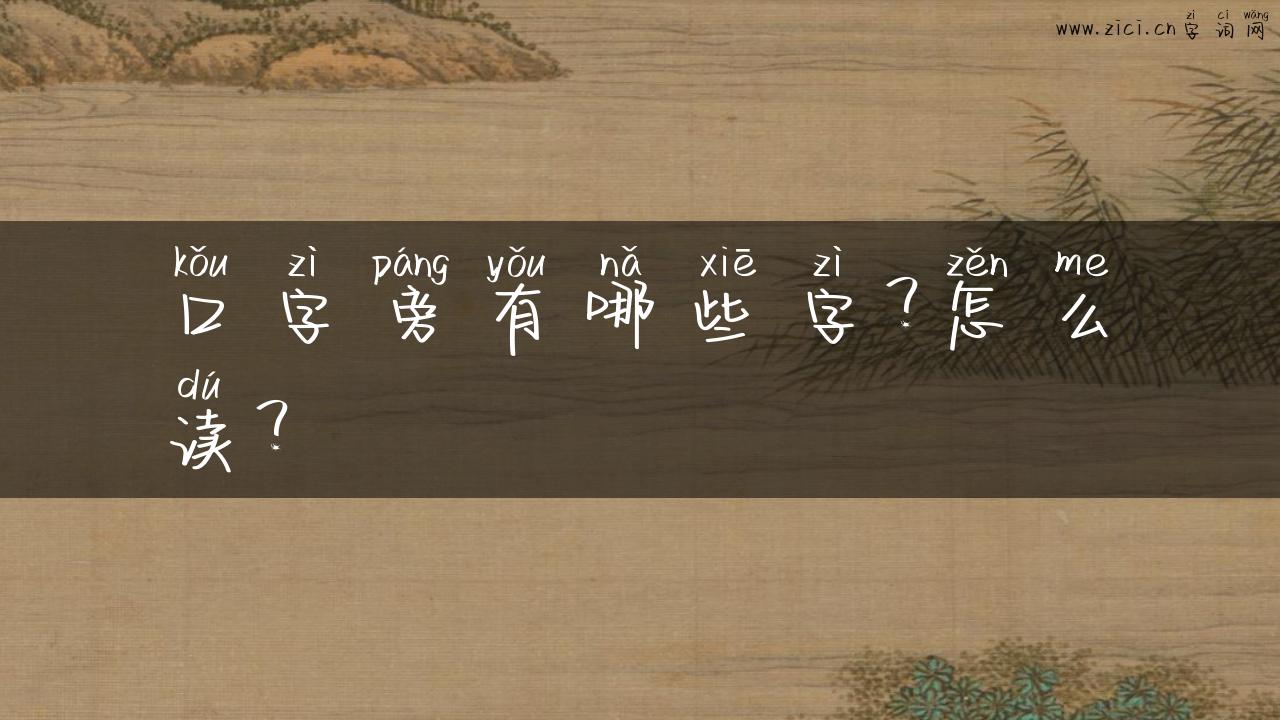 zì cí wǎng
www.zici.cn 字 词 网
kǒu zì páng yǒu nǎ xiē zì zěn me
口 字 旁 有 哪 些 字 ? 怎 么
dú
读 ?